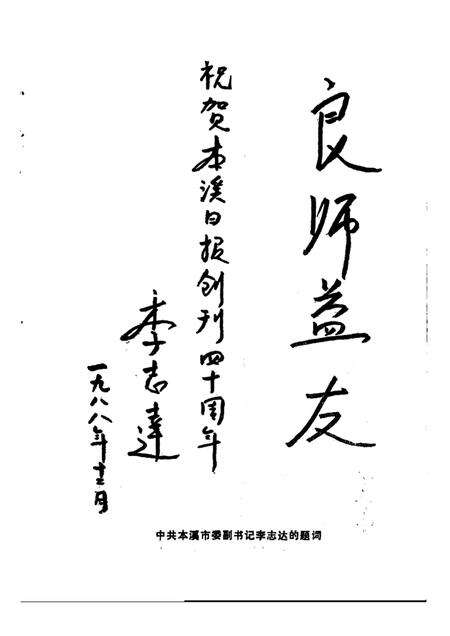 良师益友
祝贺本溪日报创刊四十周年
李志達
一九八八年十二月
中共本溪市委副书记李志达的题词